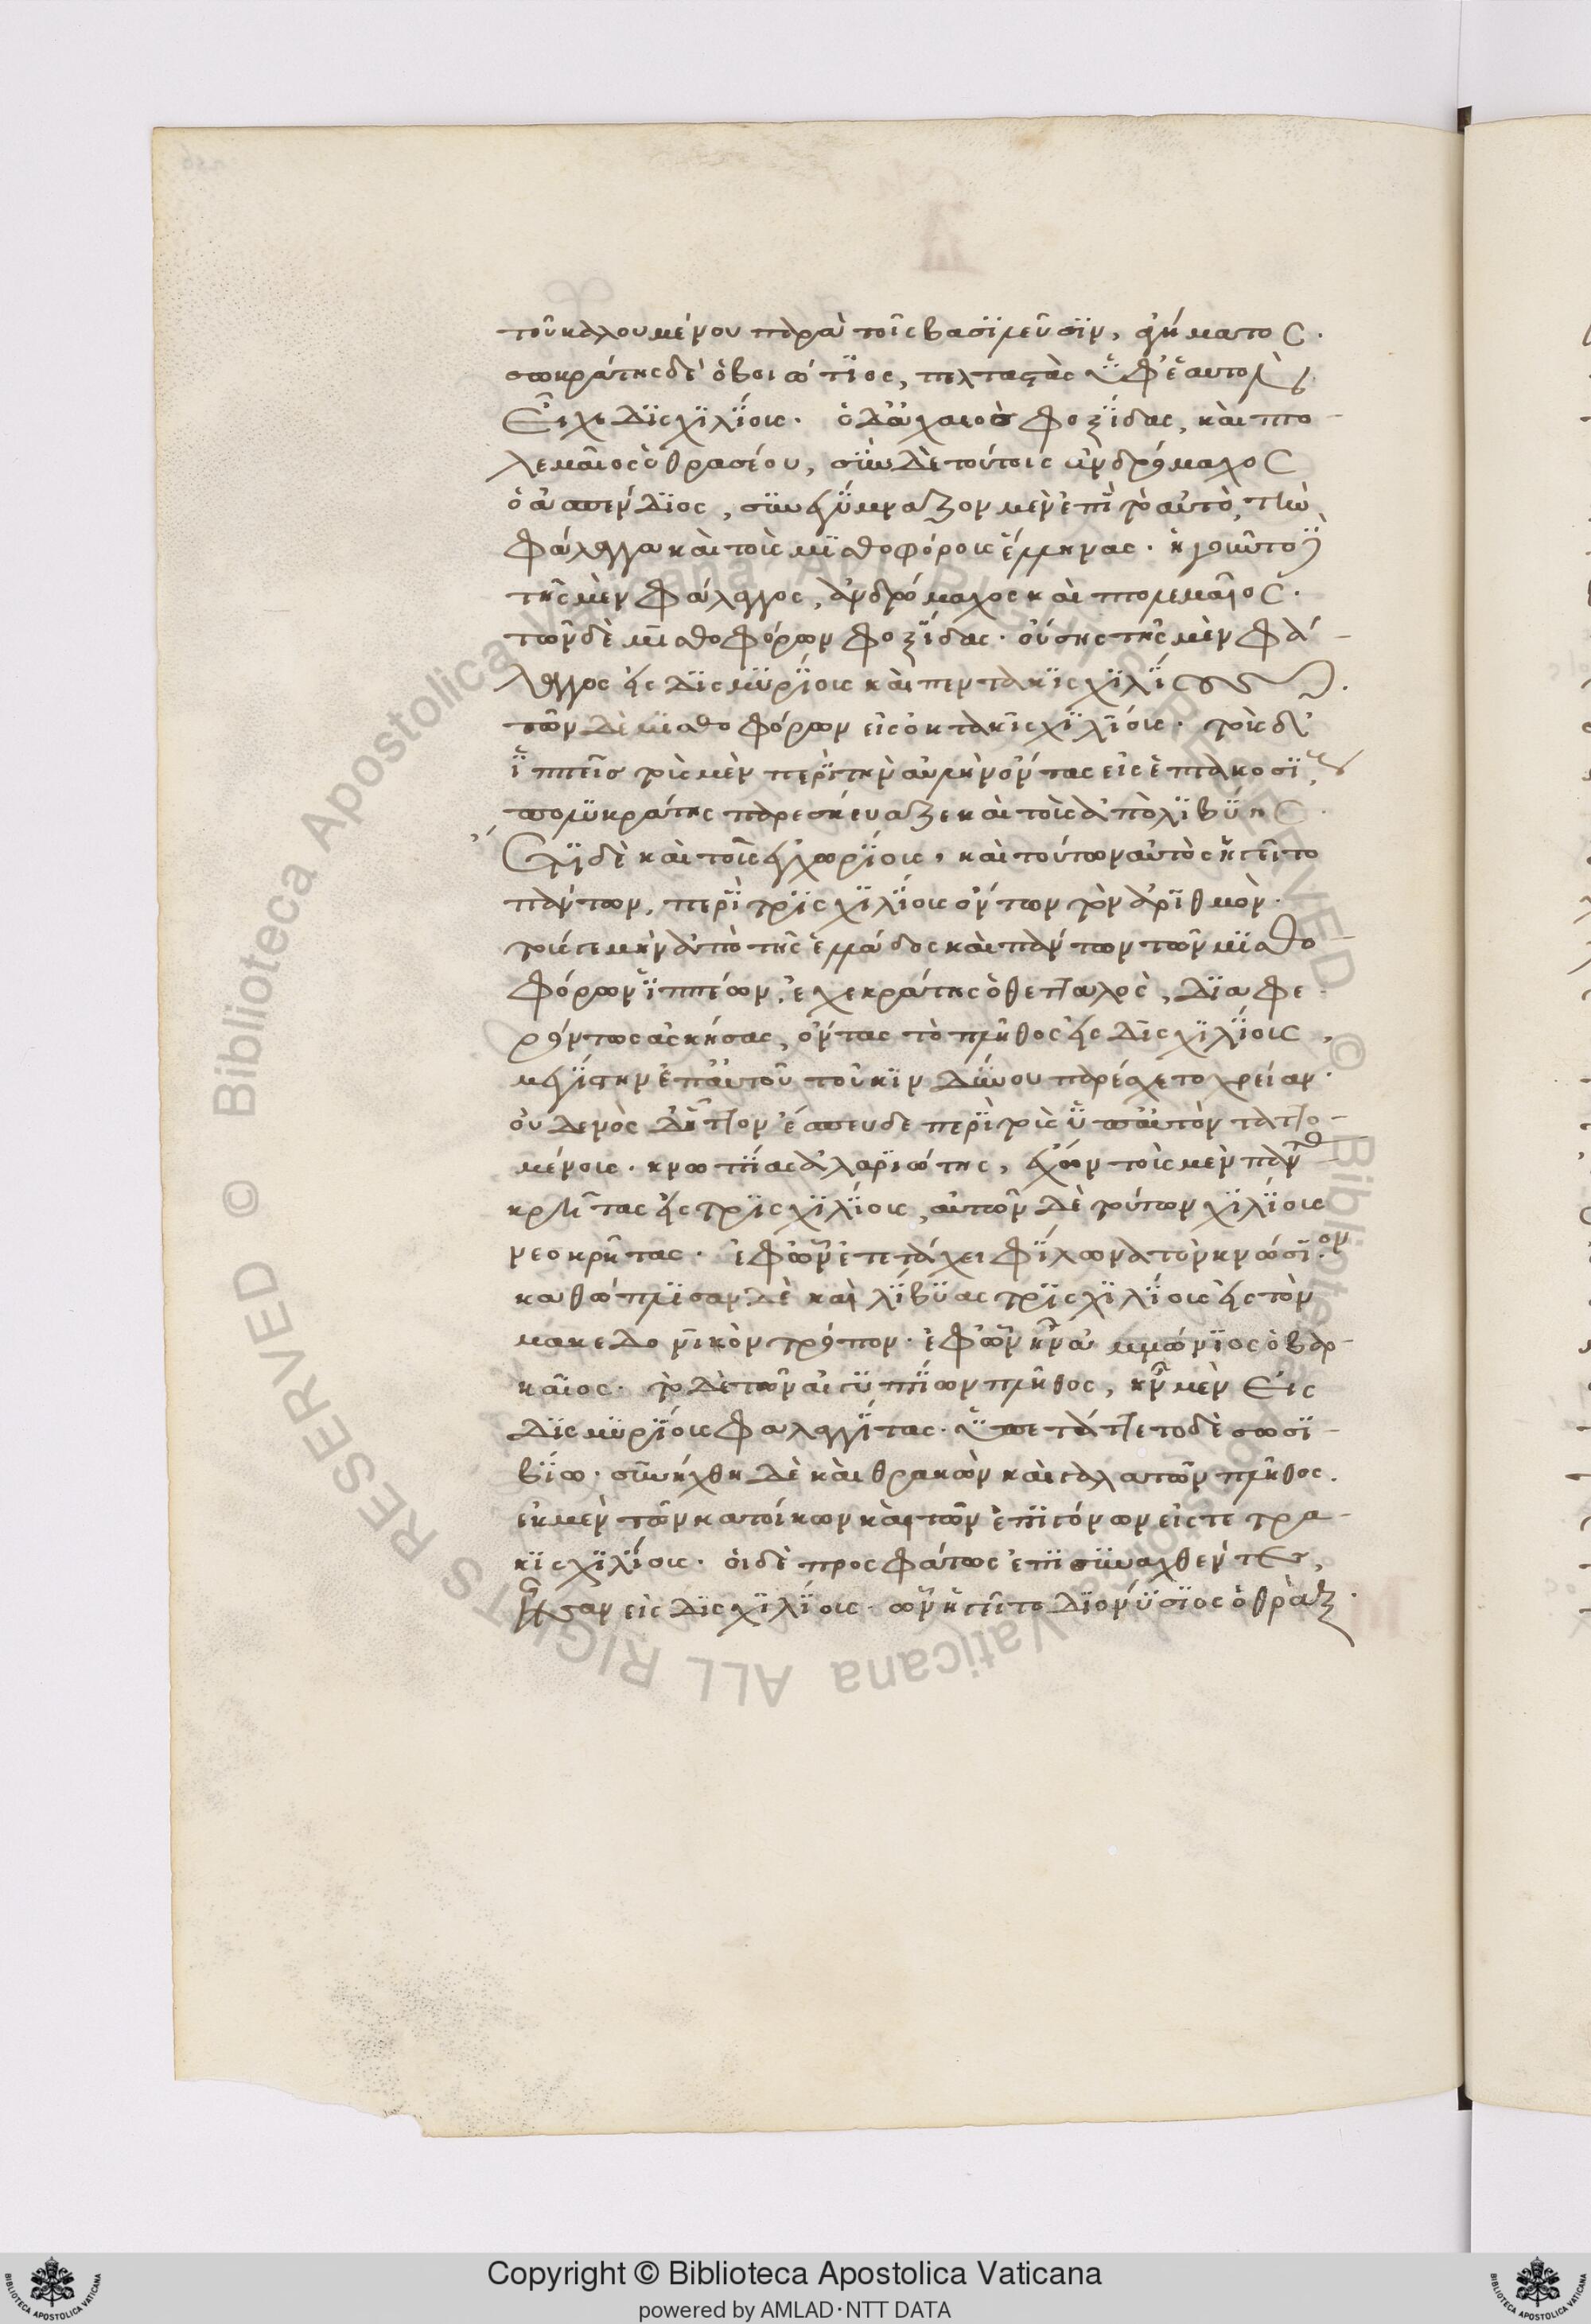 τοῦ καλουμένου παρὰ τοῖς βασιλεῦσιν, ἀγήματος.
σωκράτης δὲ ὁ βοιώτιος, πελταστὰς ὑφ' ἑαυτὸν
εἶχε δισχιλίους. ὁ δ' ἀχαιὸς φοξίδας, καὶ πτο-
λεμαῖος ὁ θρασέου, σὺν δὲ τούτοις ἀνδρόμαχος
ὁ ἀσπένδιος, συνεγύμναζον μὲν ἐπὶ τὸ αὐτὸ, τὴν
φάλαγγα καὶ τοὺς μισθοφόρους ἕλληνας. ἡγοῦντο
τῆς μὲν φάλαγγος, ἀνδρόμαχος καὶ πτολεμαῖος.
τῶν δὲ μισθοφόρων φοξίδας. οὔσης τῆς μὲν φά-
λαγγος εἰς δισμυρίους καὶ πεντακισχιλίους.
τῶν δὲ μισθοφόρων εἰς ὀκτακισχιλίους. τοὺς δ'
ἱππεῖς τοὺς μὲν περὶ τὴν αὐλὴν ὄντας εἰς ἑπτακοσίους
πολυκράτης παρεσκεύαζε καὶ τοὺς ἀπὸ λιβύης
ἔτι δὲ καὶ τοὺς ἐγχωρίους, καὶ τούτων αὐτὸς ἡγεῖτο
πάντων, περὶ τρισχιλίους ὄντων τὸν ἀριθμὸν.
τούς γε μὴν ἀπὸ τῆς ἑλλάδος καὶ πάντων τῶν μισθο
φόρων ἱππέων, ἐχεκράτης ὁ θετταλὸς, διαφε
ρόντως ἀσκήσας, ὄντας τὸ πλῆθος εἰς δισχιλίους,
μεγίστην ἐπ' αὐτοῦ τοῦ κινδύνου παρέσχετο χρείαν.
οὐδενὸς δ' ἧττον ἔσπευδε περὶ τοὺς ὑφ' αὑτὸν ταττο-
μένους. κνωπίας ἀλλαριώτης, ἔχων τοὺς μὲν πάντας
κρῆτας εἰς τρισχιλίους, αὐτῶν δὲ τούτων χιλίους
νεοκρῆτας. ἐφ' ὧν ἐτετάχει φίλωνα τὸν κνώσιον.
καθώπλισαν δὲ καὶ λίβυας τρισχιλίους εἰς τὸν
μακεδονικὸν τρόπον. ἐφ' ὧν ἦν ἀμμώνιος ὁ βαρ-
καῖος. τὸ δὲ τῶν αἰγυπτίων πλῆθος, ἦν μὲν εἰς
δισμυρίους φαλαγγίτας. ὑπετάττετο δὲ σωσι-
βίω. συνήχθη δὲ καὶ θρακῶν καὶ γαλατῶν πλῆθος.
ἐκ μὲν τῶν κατοίκων καὶ τῶν ἐπιγόνων εἰς τετρα-
κισχιλίους. οἱ δὲ προσφάτως ἐπισυναχθέντες,
ἦσαν εἰς δισχιλίους. ὧν ἡγεῖτο διονύσιος ὁ θρὰξ.